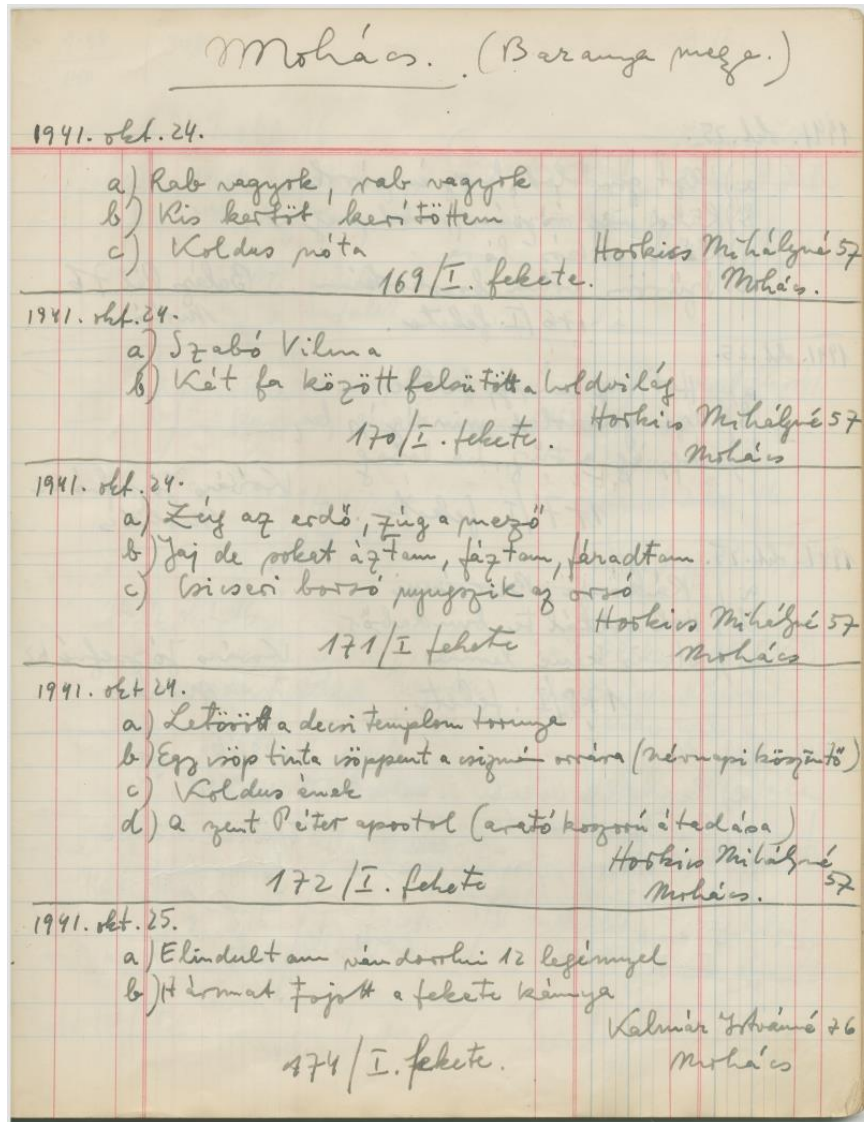 Mohács. (Baranya megye.)
1941. okt. 24.
a) Rab vagyok, rab vagyok
b) Kis kertöt kerítöttem
c) Koldus nóta
Horkics Mihályné 57
169/I. fekete. Mohács.
1941. okt. 24.
a) Szabó Vilma
b) Két fa között felsütött a holdvilág
Horkics Mihályné 57
170/I. fekete. Mohács
1941. okt. 24.
a) Zúg az erdő, zúg a mező
b) Jaj de sokat áztam, fáztam, fáradtam
c) Csicseri borsó nyugszik az orsó
Horkics Mihályné 57
171/I fekete Mohács
1941. okt 24.
a) Letörött a decsi templom tornya
b) Egy csöp tinta csöppent a csizmám orrára (névnapi köszöntő)
c) Koldus ének
d) A szent Péter apostol (arató koszorú átadása)
Horkics Mihályné
172/I. fekete Mohács. 57
1941. okt. 25.
a) Elindultam vándorolni 12 legénnyel
b) Hármat tojott a fekete kánya
Kalmár Istvánné 76
174/I. fekete. Mohács